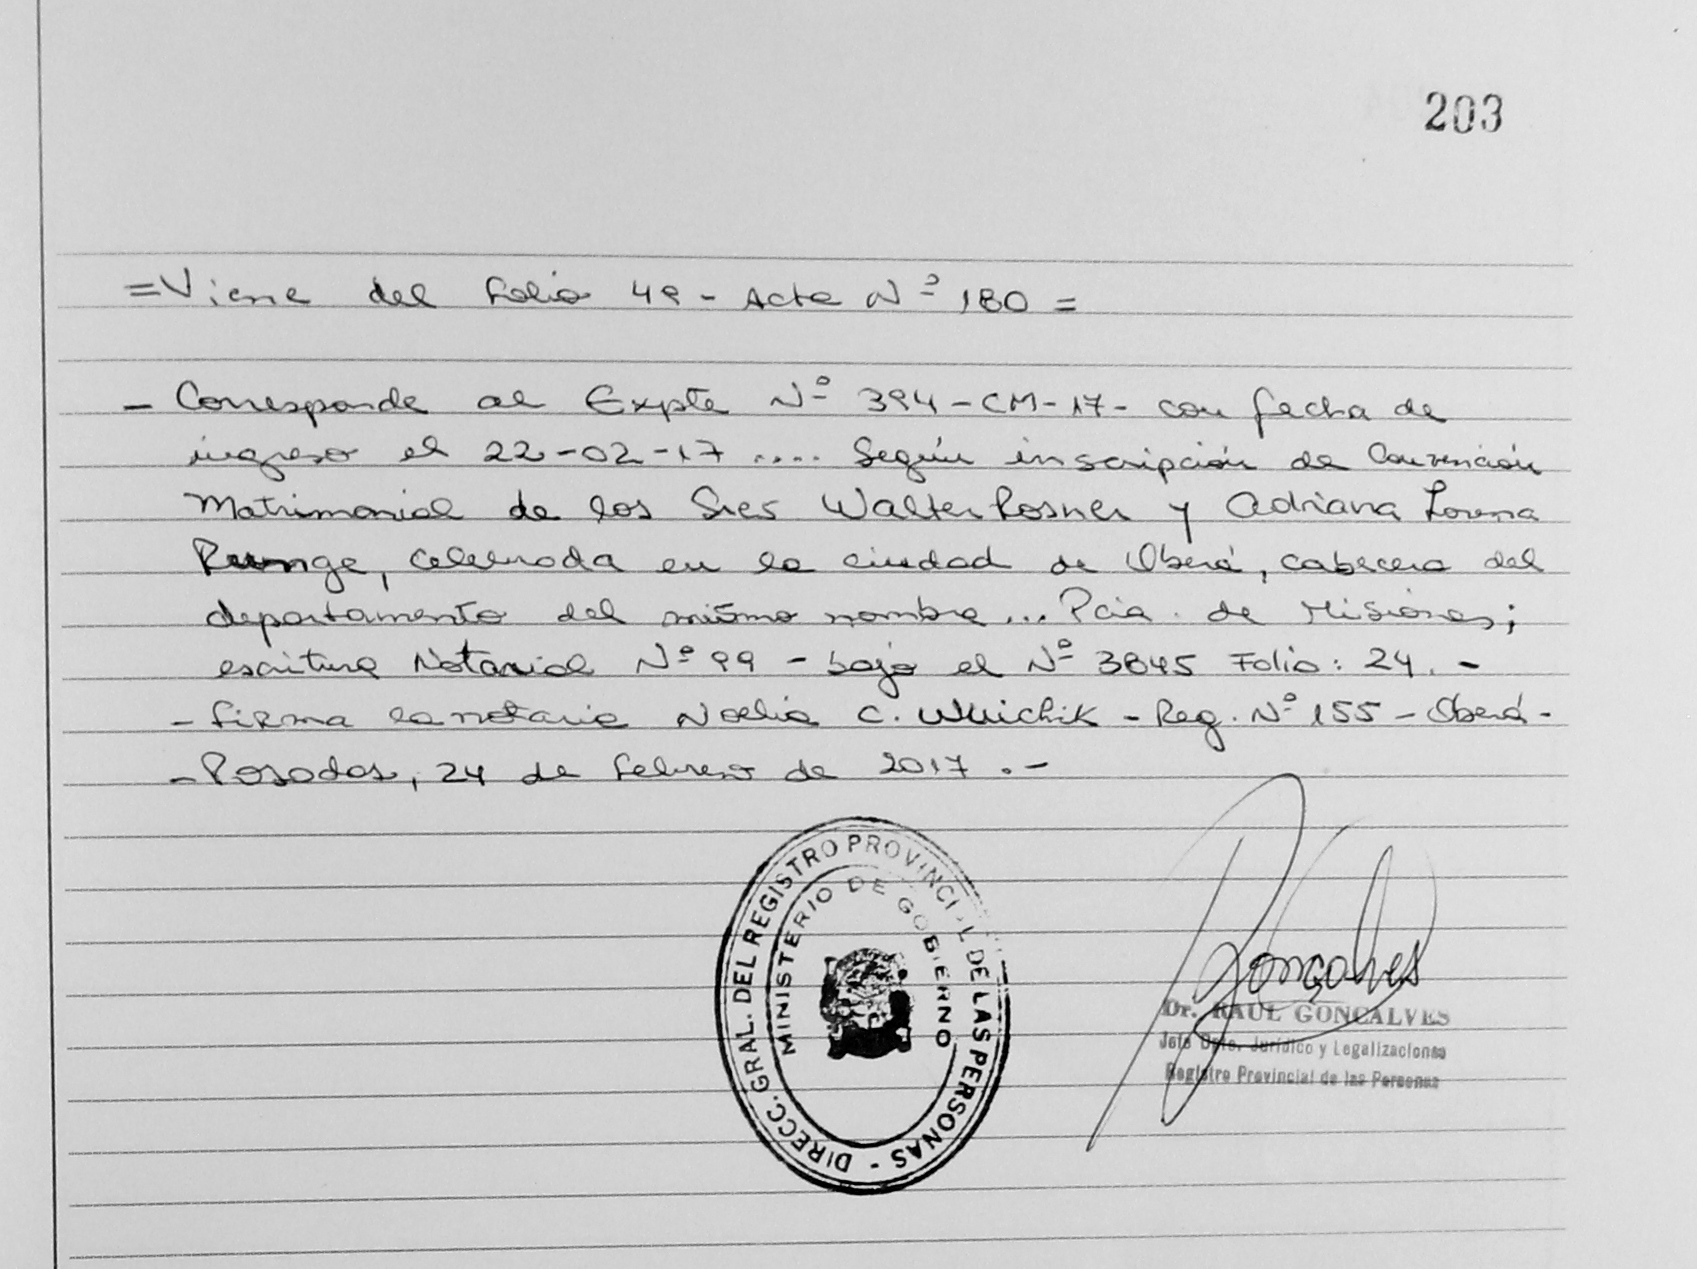 203
=Viene del folio 49 - Acta Nº 180 =
- Corresponde al Expte Nº 394-CM-17- con fecha de
ingreso el 22-02-17 .... Según inscripción de Convención
Matrimonial de los Sres Walter Posner y Adriana Lorena
Runge, celebrada en la ciudad de Oberá, cabecera del
departamento del mismo nombre... Pcia. de Misiones;
escritura Notarial Nº 99 - bajo el Nº 3845 Folio: 24.-
- firma la notaria Noelia C. Wuichik - Reg. Nº 155 - Oberá-
- Posadas, 24 de febrero de 2017 .-
DIRECC. GRAL. DEL REGISTRO PROVINCIAL DE LAS PERSONAS -
MINISTERIO DE GOBIERNO
Gonçalves
Dr. RAUL GONCALVES
Jefe Dpto. Jurídico y Legalizaciones
Registro Provincial de las Personas